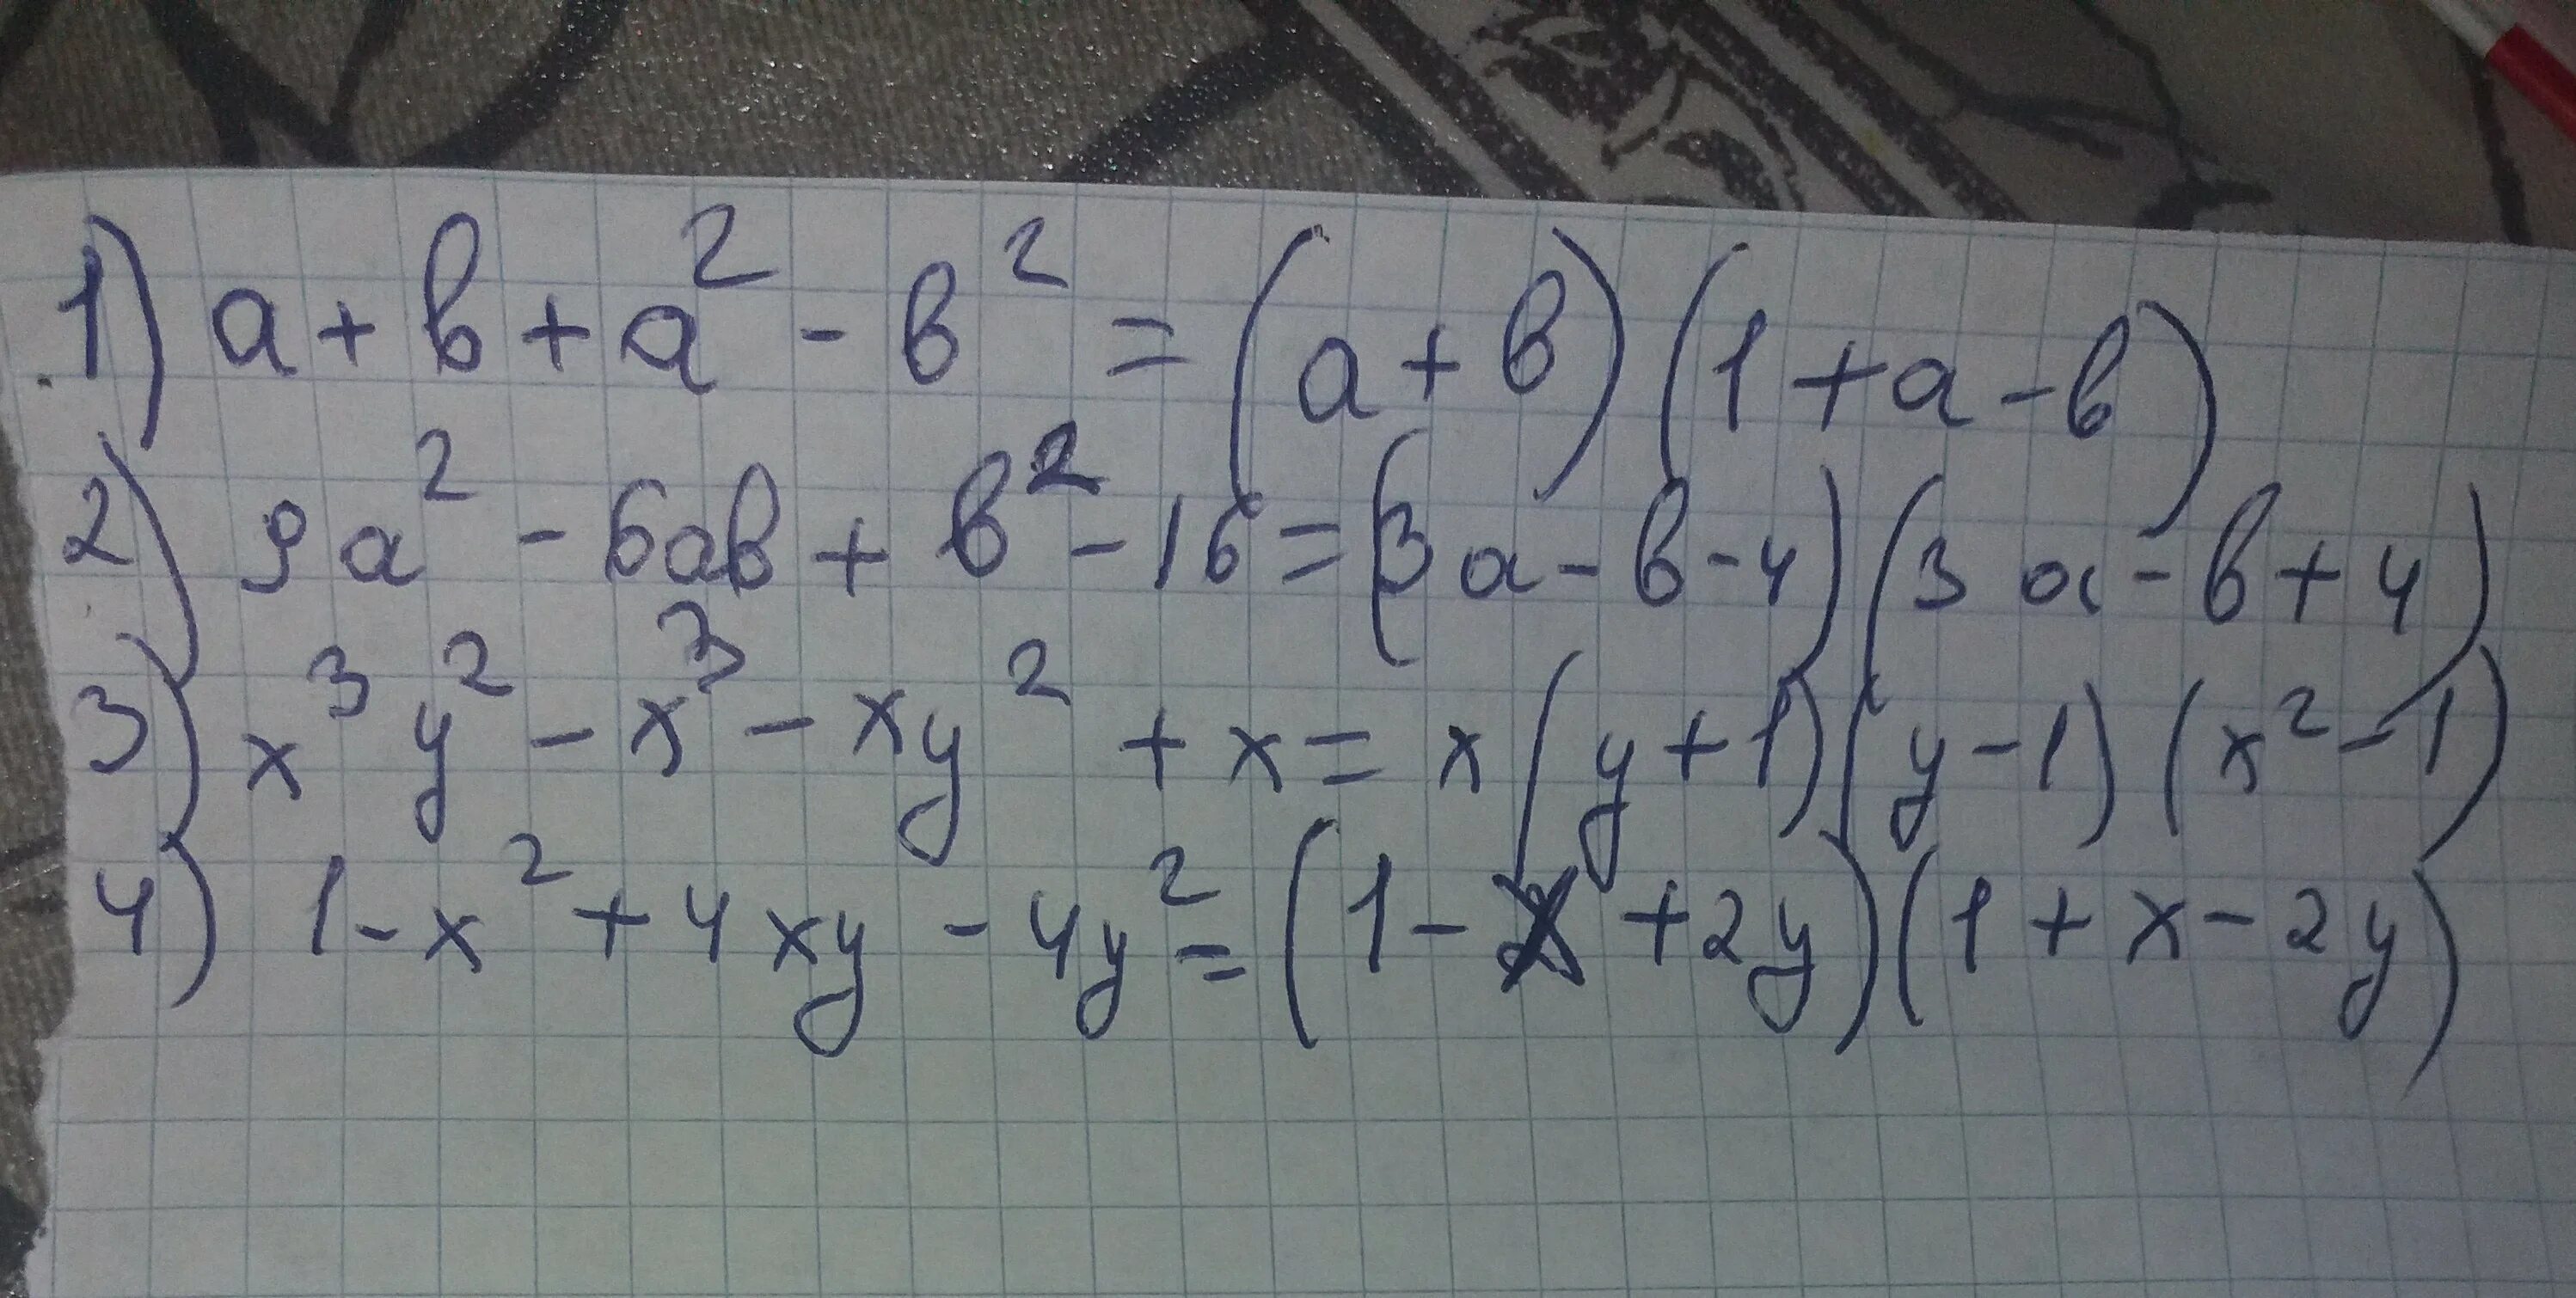 1) a + b + a² - b² = (a + b)(1 + a - b)
2) 9a² - 6ab + b² - 16 = (3a - b - 4)(3a - b + 4)
3) x³y² - x³ - xy² + x = x(y + 1)(y - 1)(x² - 1)
4) 1 - x² + 4xy - 4y² = (1 - x + 2y)(1 + x - 2y)